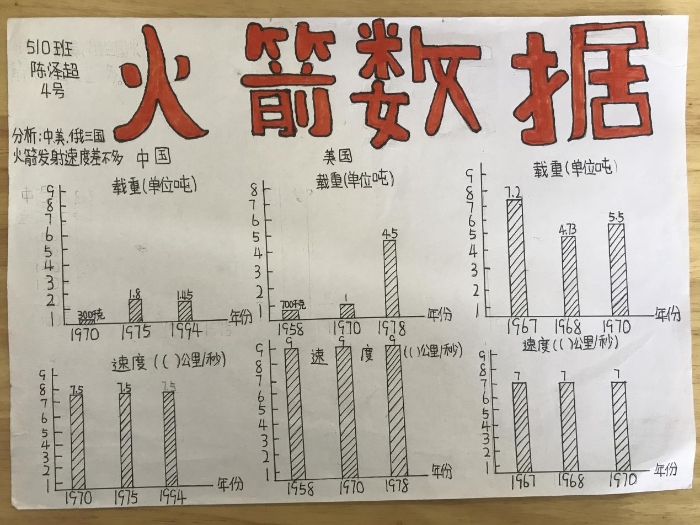 火箭数据
510班
陈泽超
4号
分析:中美.俄三国
火箭发射速度差不多
中国
载重(单位吨)
9
8
7
6
5
4
3
2
1
300千克
1.8
1.45
1970
1975
1994
年份
美国
载重(单位吨)
8
7
6
5
4
3
2
1
700千克
1
4.5
1958
1970
1978
年份
载重(单位吨)
9
8
7
6
5
4
3
2
1
7.2
4.73
5.5
1967
1968
1970
年份
速度(( )公里/秒)
9
8
7
6
5
4
3
2
1
7.5
7.5
7.5
1970
1975
1994
年份
速 度 (( )公里/秒)
9
8
7
6
5
4
3
2
1
9
9
9
1958
1970
1978
年份
速度(( )公里/秒)
9
8
7
6
5
4
3
2
1
7
7
7
1967
1968
1970
年份